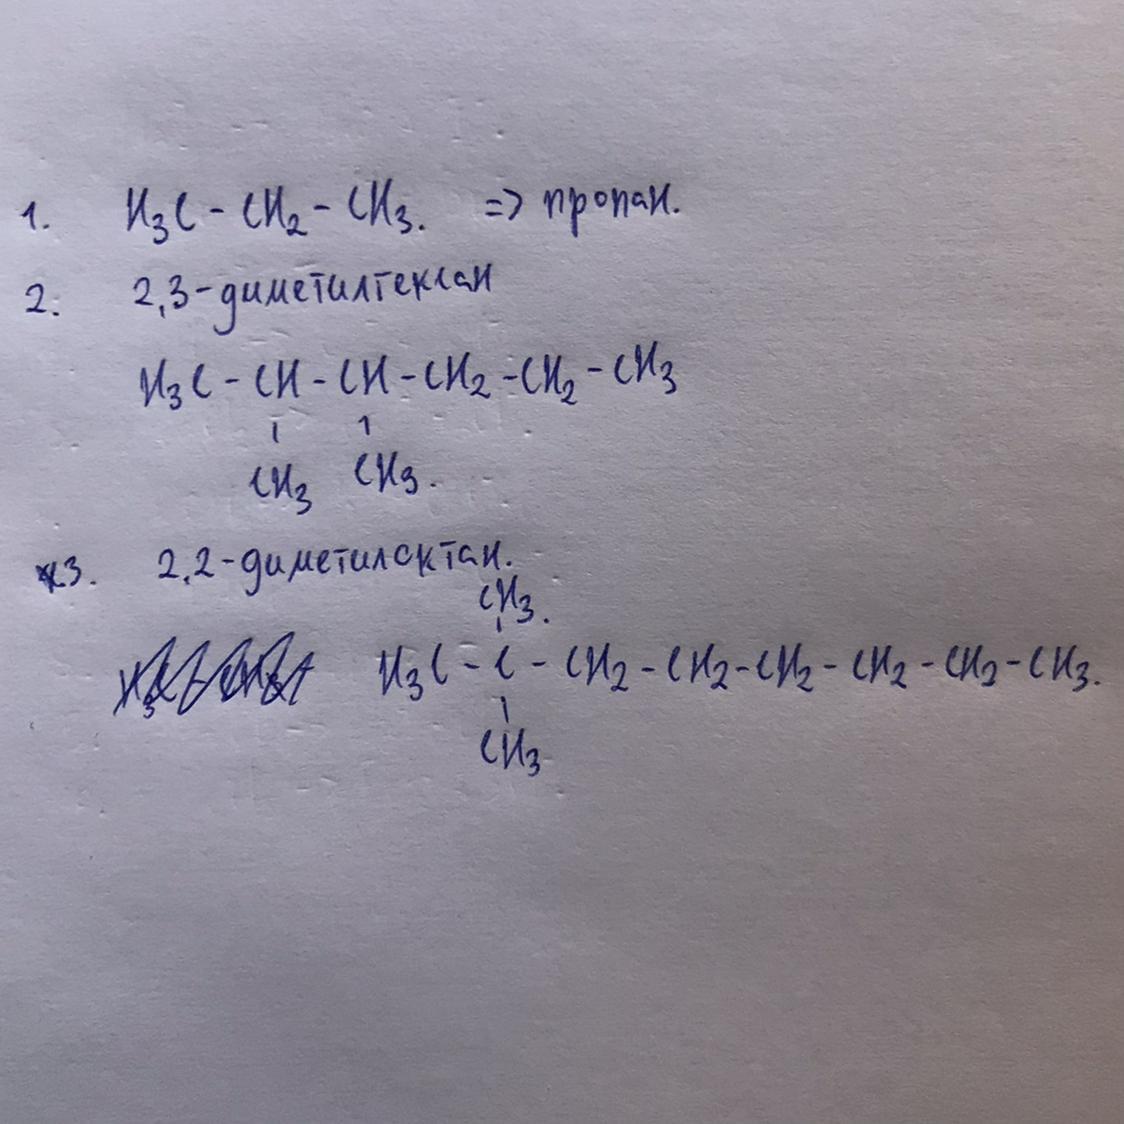 1. H₃C - CH₂ - CH₃. => пропан.
2. 2,3-диметилгексан
H₃C - CH - CH - CH₂ - CH₂ - CH₃
CH₃ CH₃.
3. 2,2-диметилоктан.
CH₃.
H₃C - C - CH₂ - CH₂ - CH₂ - CH₂ - CH₂ - CH₃.
CH₃